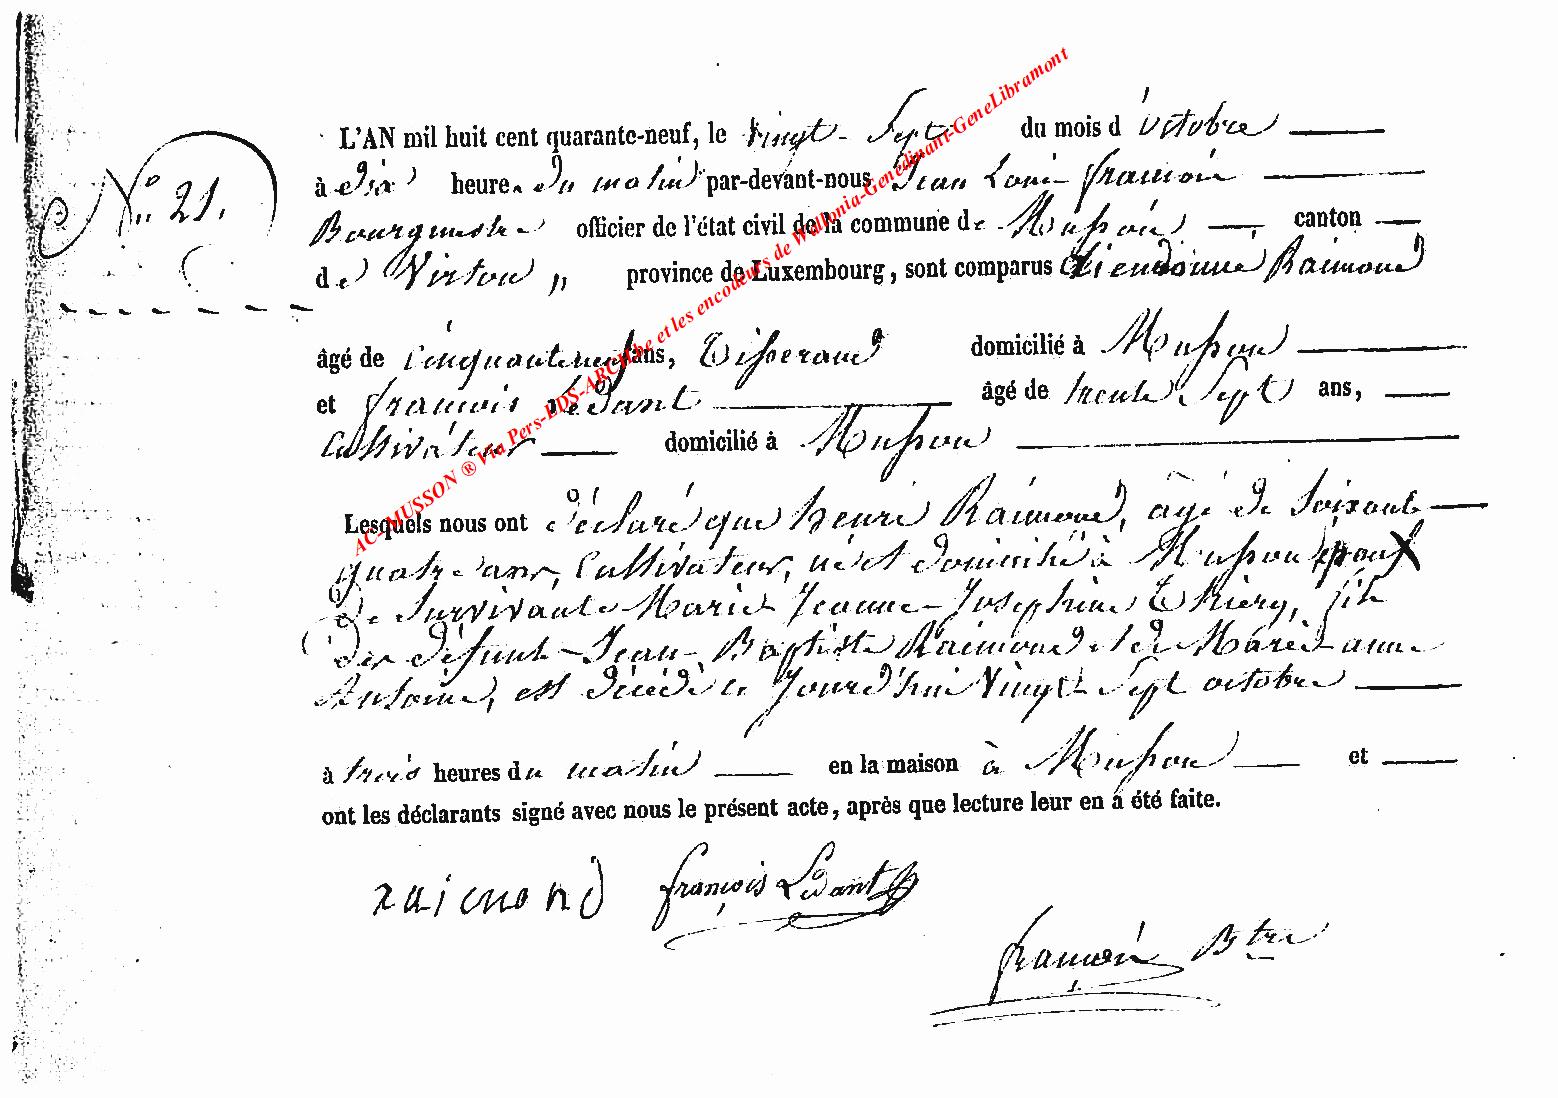 N° 21.
L'AN mil huit cent quarante-neuf, le vingt-Sept du mois d'octobre
à dix heures du matin par-devant-nous Jean Louis françois
Bourgmestre officier de l'état civil de la commune de Musson, canton
de Virton, province de Luxembourg, sont comparus Dieudonné Raimond
âgé de cinquante neuf ans, Tisserand domicilié à Musson
et françois Lédant âgé de trente Sept ans,
Cultivateur domicilié à Musson
Lesquels nous ont déclaré que henri Raimond, âgé de Soixante
quatre ans, Cultivateur, né et domicilié à Musson époux
de Survivante Marie-Jeanne-Josephine Thiery, fils
des défunts Jean-Baptiste Raimond et de Marie-anne
Antoine, est décédé ce Jourd'hui Vingt-Sept octobre
à trois heures du matin en la maison à Musson et
ont les déclarants signé avec nous le présent acte, après que lecture leur en a été faite.
raimond françois Lédant
françois Btre
AC-MUSSON ® Via Pers-EDS-ARCHbe et les encodeurs de Wallonia-Genedinant-GeneLibramont